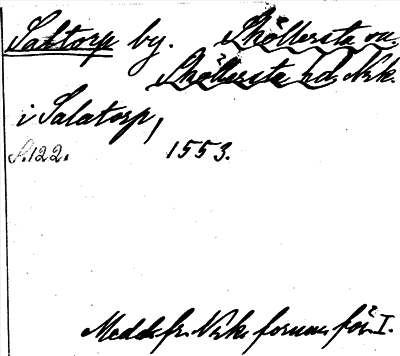 Saltorp by. Sköllersta sn.
Sköllersta hd. Nrk.
i Salatorp,
S. 122. 1553.
Medd. fr. Nrk. fornm. för. I.